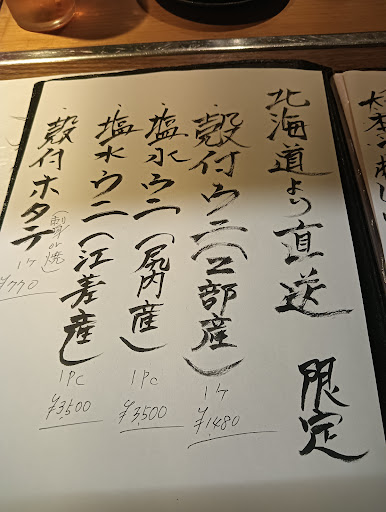 北海道より直送 限定
・殻付ウニ(エ部産)
1ケ
¥1,480
・塩水ウニ(尻内産)
1PC
¥3,500
・塩水ウニ(江差産)
1PC
¥3,500
・殻付ホタテ
(刺身or焼)
1ケ
¥770